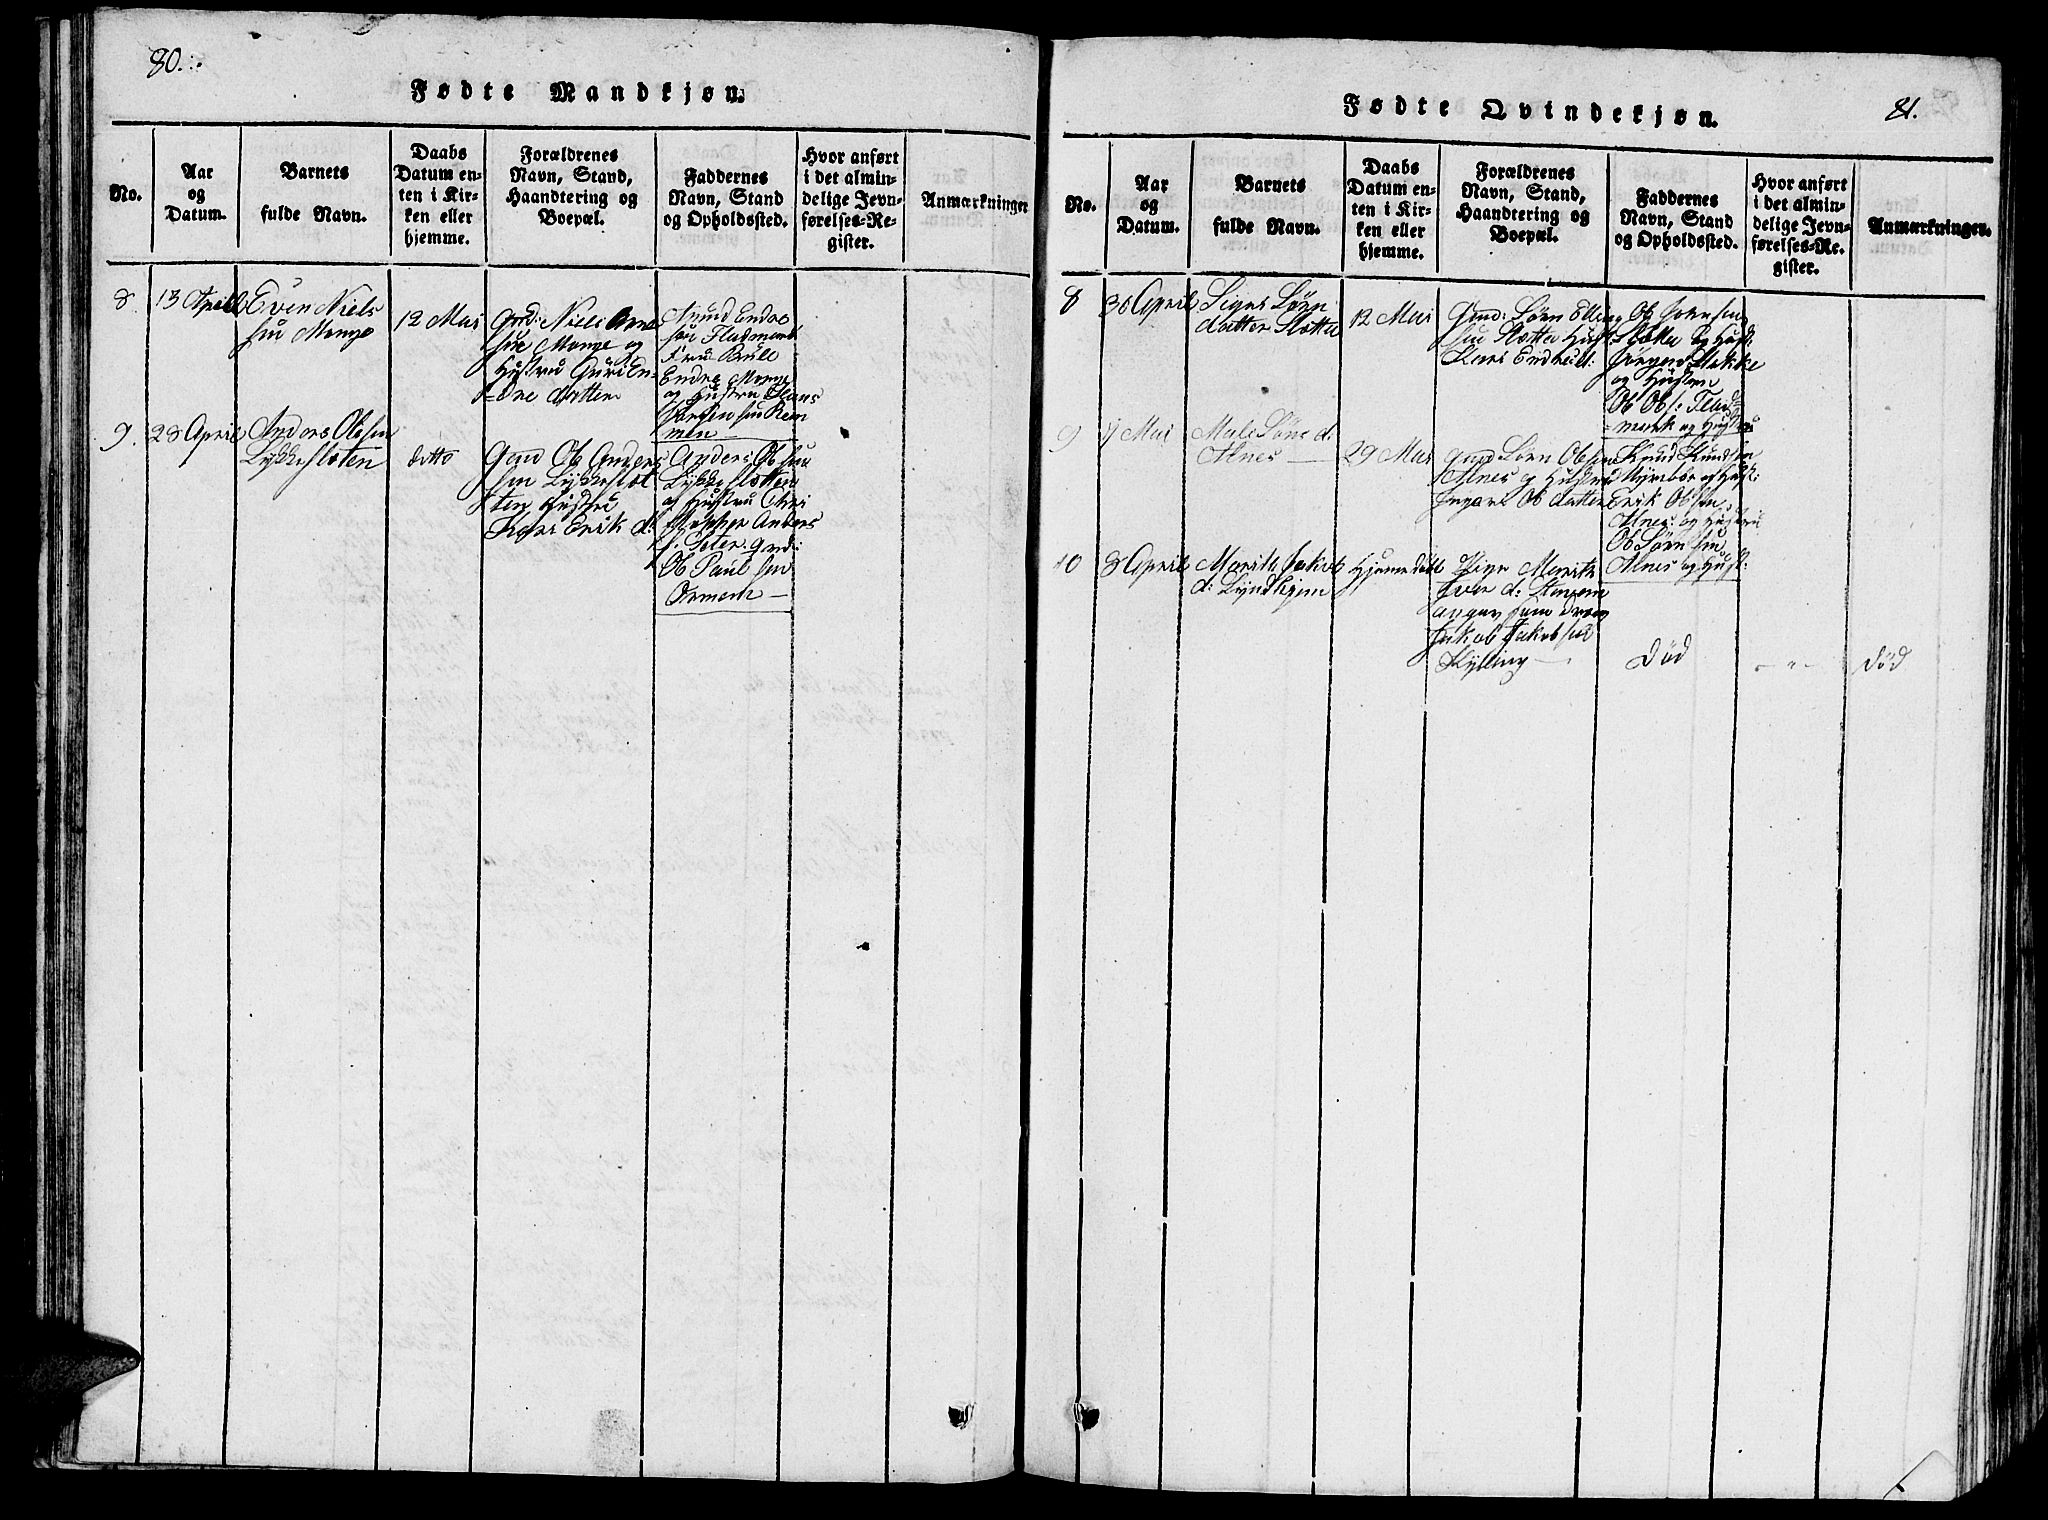 80.
Fødte Mandkjøn.
No.
Aar
og
Datum.
Barnets
fulde Navn.
Daabs
Datum en-
ten i Kir-
ken eller
hjemme.
Forældrenes
Navn, Stand,
Haandtering og
Boepæl.
Faddernes
Navn, Stand
og Opholdssted.
Hvor anført
i det almin-
delige Jevn-
førelses-Re-
gister.
Anmærkninger
8.
13 April
Even Niels
søn Monge
12 Mai
Gmd: Niels Arne
søn Monge og
Hustru Guri En-
=dre datter
Endre
søn Fladmark
Endre Monge
og Hustru Hans
søn Rem
men
9.
28 April
Anders Olsen
Lykkesloten
ditto
Gmd Ole Anders
søn Lykkeslot
ten Hustru
Kari Erik d:
Anders Ol søn
Lykkeslotten
og Hustru Chri
stopher Anders
s: Seter. gmd:
Ole Paul søn
Ormem
81.
Fødte Qvindekjøn.
No.
Aar
og
Datum.
Barnets
fulde Navn.
Daabs
Datum en-
ten i Kir-
ken eller
hjemme.
Forældrenes
Navn, Stand,
Haandtering og
Boepæl.
Faddernes
Navn, Stand
og Opholdssted.
Hvor anført
i det almin-
delige Jevn-
førelses-Re-
gister.
Anmærkninger.
8
30 April
Signe Sørn
datter Slotta
12 Mai
Gmd: Sørn
søn Slotta Hust
Kari Endre d:
Ole
og Hust:
Jørgen Stokke
og Hustru
Ole Ols: Flad
=mark og Hustru
9
9 Mai
Mali Sørn d:
Alnes
29 Mai
Gmd Sørn Olsen
Alnes og Hustru
Ingerl Ole datter
Knud Knudsøn
Myrebøe og Hust:
Erik Olsen
Alnes: og Hustru
Ole Sørn søn
Alnes og Hust:
10
8 April
Marith Jakob
d: Lyndhjem
Hjemmedøbt
Pige Marith
Iver d:
angav som
Jakob Jakobsøn
Kylling
Død
- " -
død